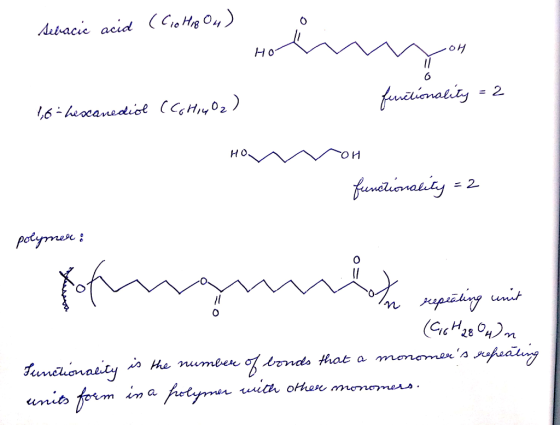 Sebacic acid (C10H18O4)
O
HO
OH
O
functionality = 2
1,6-hexanediol (C6H14O2)
HO
OH
functionality = 2
polymer:
O
O
O
O
O
n
repeating unit
(C16H28O4)n
Functionality is the number of bonds that a monomer's repeating
units form in a polymer with other monomers.